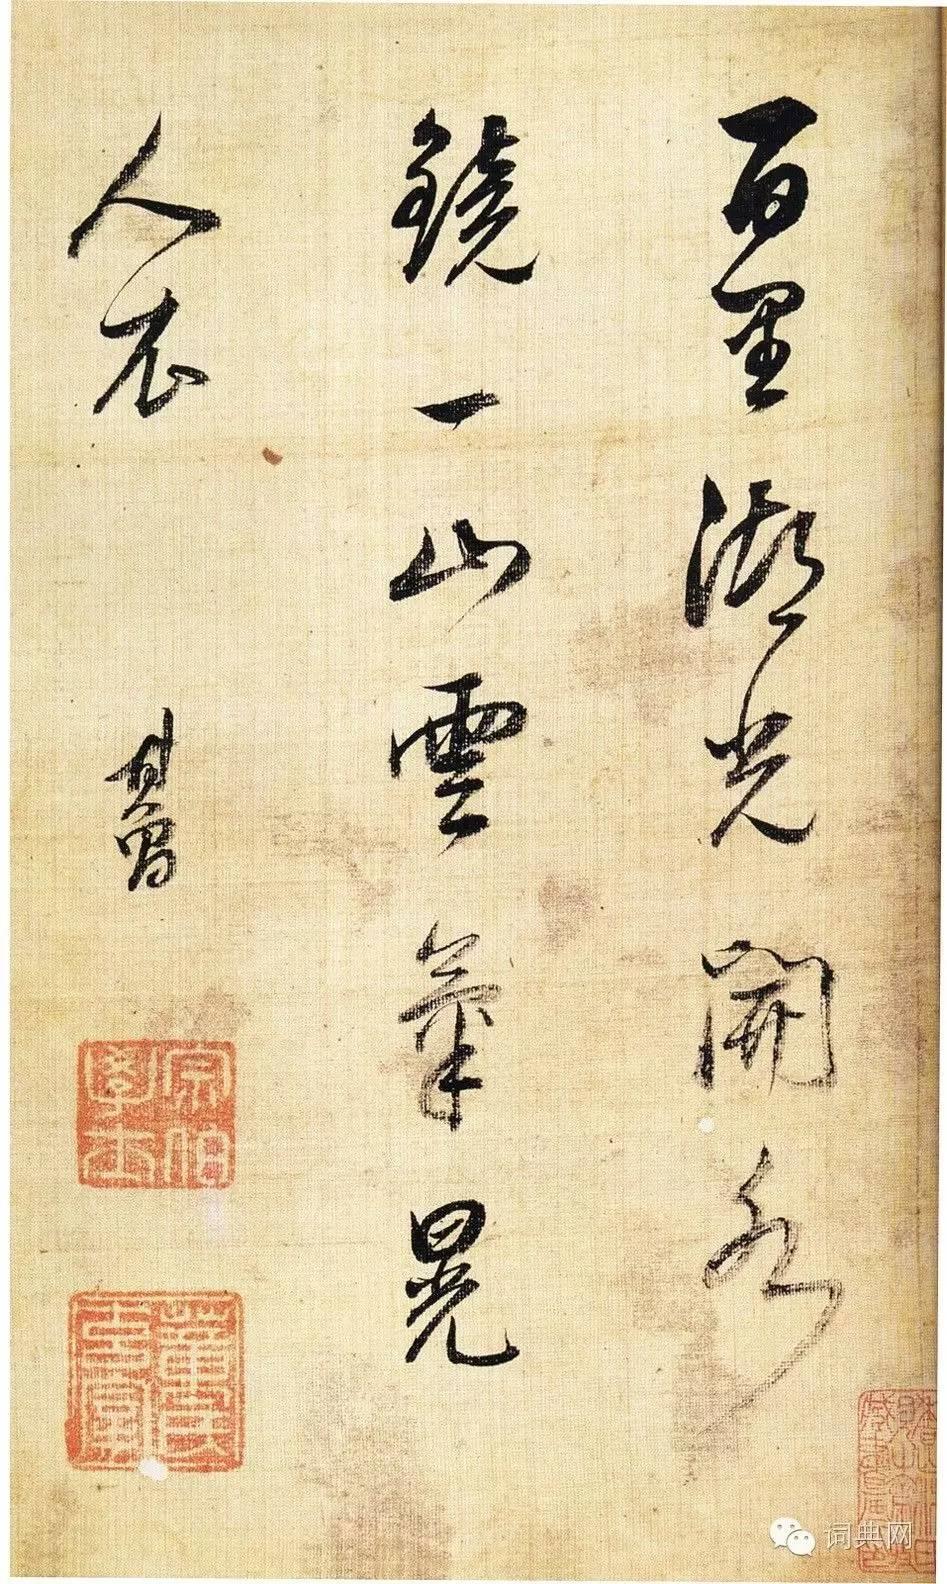 百里湖光開水
鏡一山雲氣晃
人衣
其昌
宗伯學士
董氏玄宰
词典网